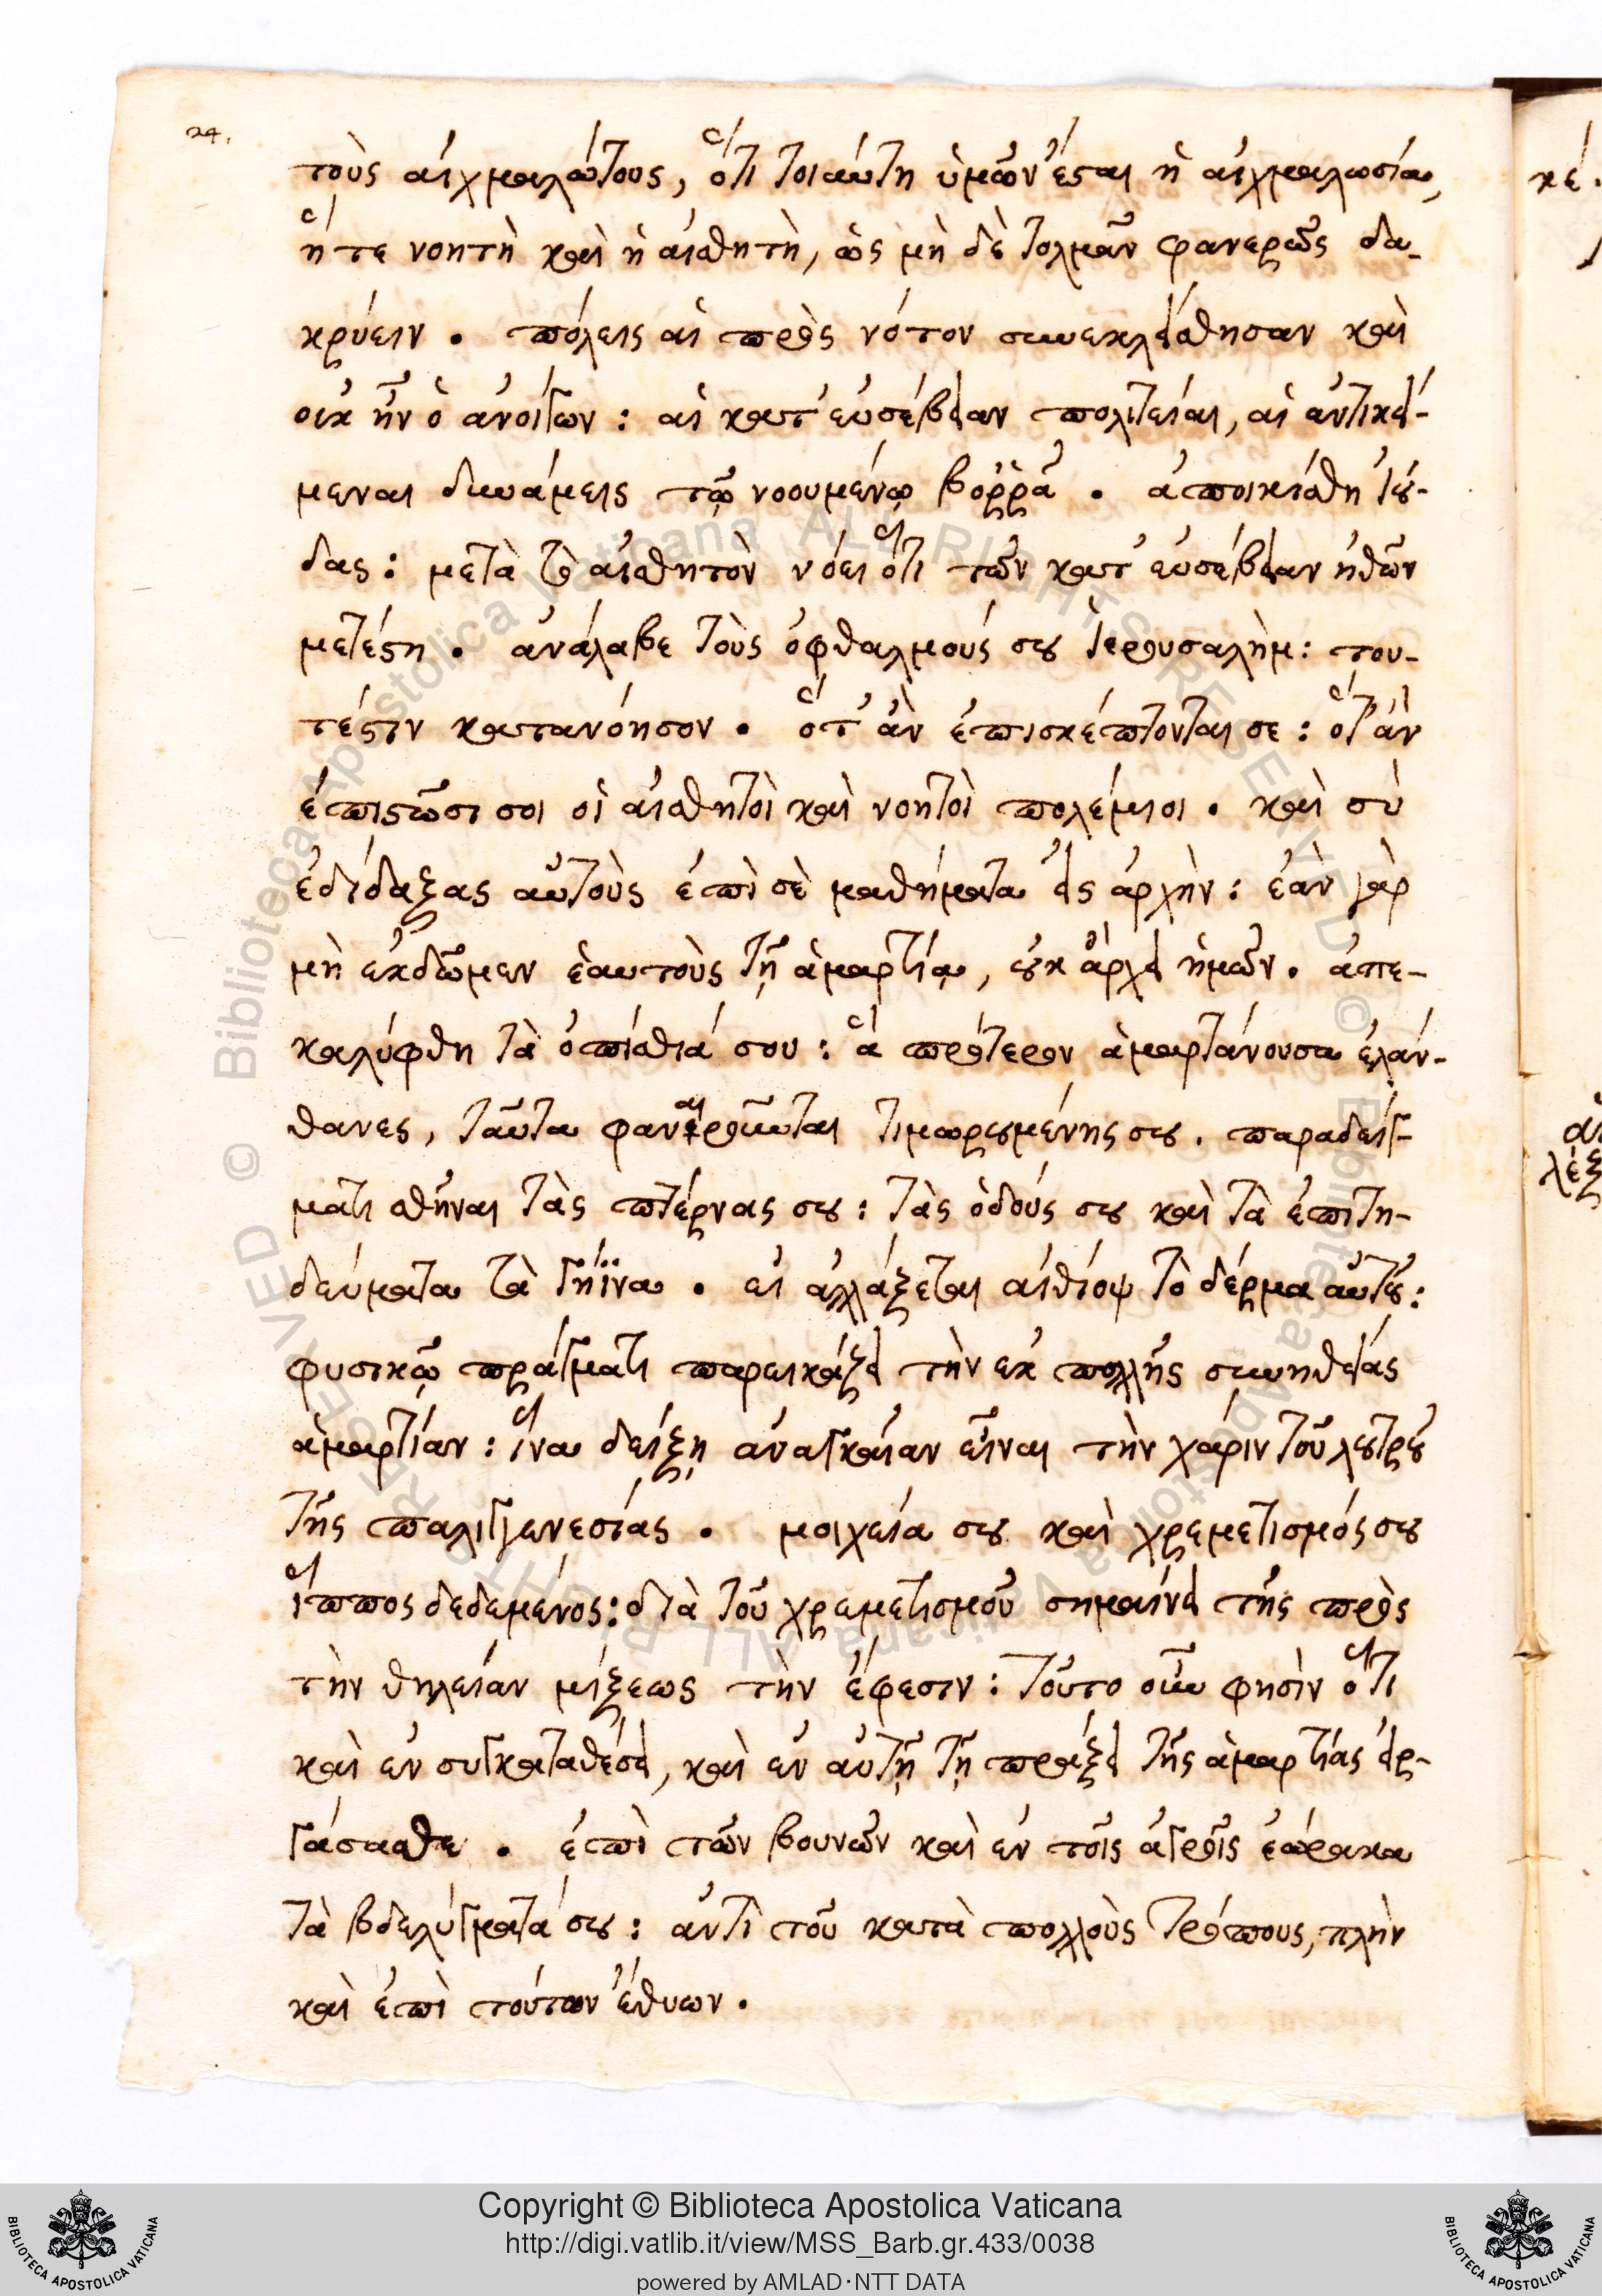 24.
τοὺς αἰχμαλώτους, ὅτι τοιαύτη ὑμῶν ἔσται ἡ αἰχμαλωσία,
ἥ τε νοητὴ καὶ ἡ αἰσθητὴ, ὡς μὴ δὲ τολμᾶν φανερῶς δα-
κρύειν. πόλεις αἱ πρὸς νότον συνεκλείσθησαν καὶ
οὐκ ἦν ὁ ἀνοίγων: αἱ κατ' εὐσέβειαν πολιτεῖαι, αἱ ἀντικεί-
μεναι δυνάμεις τῷ νοουμένῳ βοῤῥᾷ. ἀποικίσθη Ἰού-
δας: μετὰ τὸ αἰσθητὸν νόει ὅτι τῶν κατ' εὐσέβειαν ἠθῶν
μετέστη. ἀνάλαβε τοὺς ὀφθαλμούς σου Ἱερουσαλὴμ: του-
τέστιν κατανόησον. ὅτ' ἂν ἐπισκέπτονταί σε: ὅτ' ἂν
ἐπιστῶσι σοι οἱ αἰσθητοὶ καὶ νοητοὶ πολέμιοι. καὶ σὺ
ἐδίδαξας αὐτοὺς ἐπὶ σὲ μαθήματα εἰς ἀρχὴν: ἐὰν γὰρ
μὴ ἐκδῶμεν ἑαυτοὺς τῇ ἁμαρτίᾳ, οὐκ ἄρχει ἡμῶν. ἀπε-
καλύφθη τὰ ὀπίσθιά σου: ἃ πρότερον ἁμαρτάνουσα ἐλάν-
θανες, ταῦτα φανεροῦνται τιμωρουμένης σου. παραδειγ-
ματισθῆναι τὰς πτέρνας σου: τὰς ὁδούς σου καὶ τὰ ἐπιτη-
δεύματα τὰ γήϊνα. εἰ ἀλλάξεται αἰθίοψ τὸ δέρμα αὐτοῦ:
φυσικῷ πράγματι παρεικάζει τὴν ἐκ πολλῆς συνηθείας
ἁμαρτίαν: ἵνα δείξῃ ἀναγκαίαν εἶναι τὴν χάριν τοῦ λουτροῦ
τῆς παλιγγενεσίας. μοιχεία σου καὶ χρεμετισμός σου
ἵππος δεδεμένος: διὰ τοῦ χρεμετισμοῦ σημαίνει τῆς πρὸς
τὴν θηλείαν μίξεως τὴν ἔφεσιν: τοῦτο οὖν φησὶν ὅτι
καὶ ἐν συγκαταθέσει, καὶ ἐν αὐτῇ τῇ πράξει τῆς ἁμαρτίας εἰρ-
γάσασθε. ἐπὶ τῶν βουνῶν καὶ ἐν τοῖς ἀγροῖς ἑώρακα
τὰ βδελύγματά σου: ἀντὶ τοῦ κατὰ πολλοὺς τρόπους, πλὴν
καὶ ἐπὶ τούτων ἔθυων.
Copyright © Biblioteca Apostolica Vaticana
http://digi.vatlib.it/view/MSS_Barb.gr.433/0038
powered by AMLAD·NTT DATA